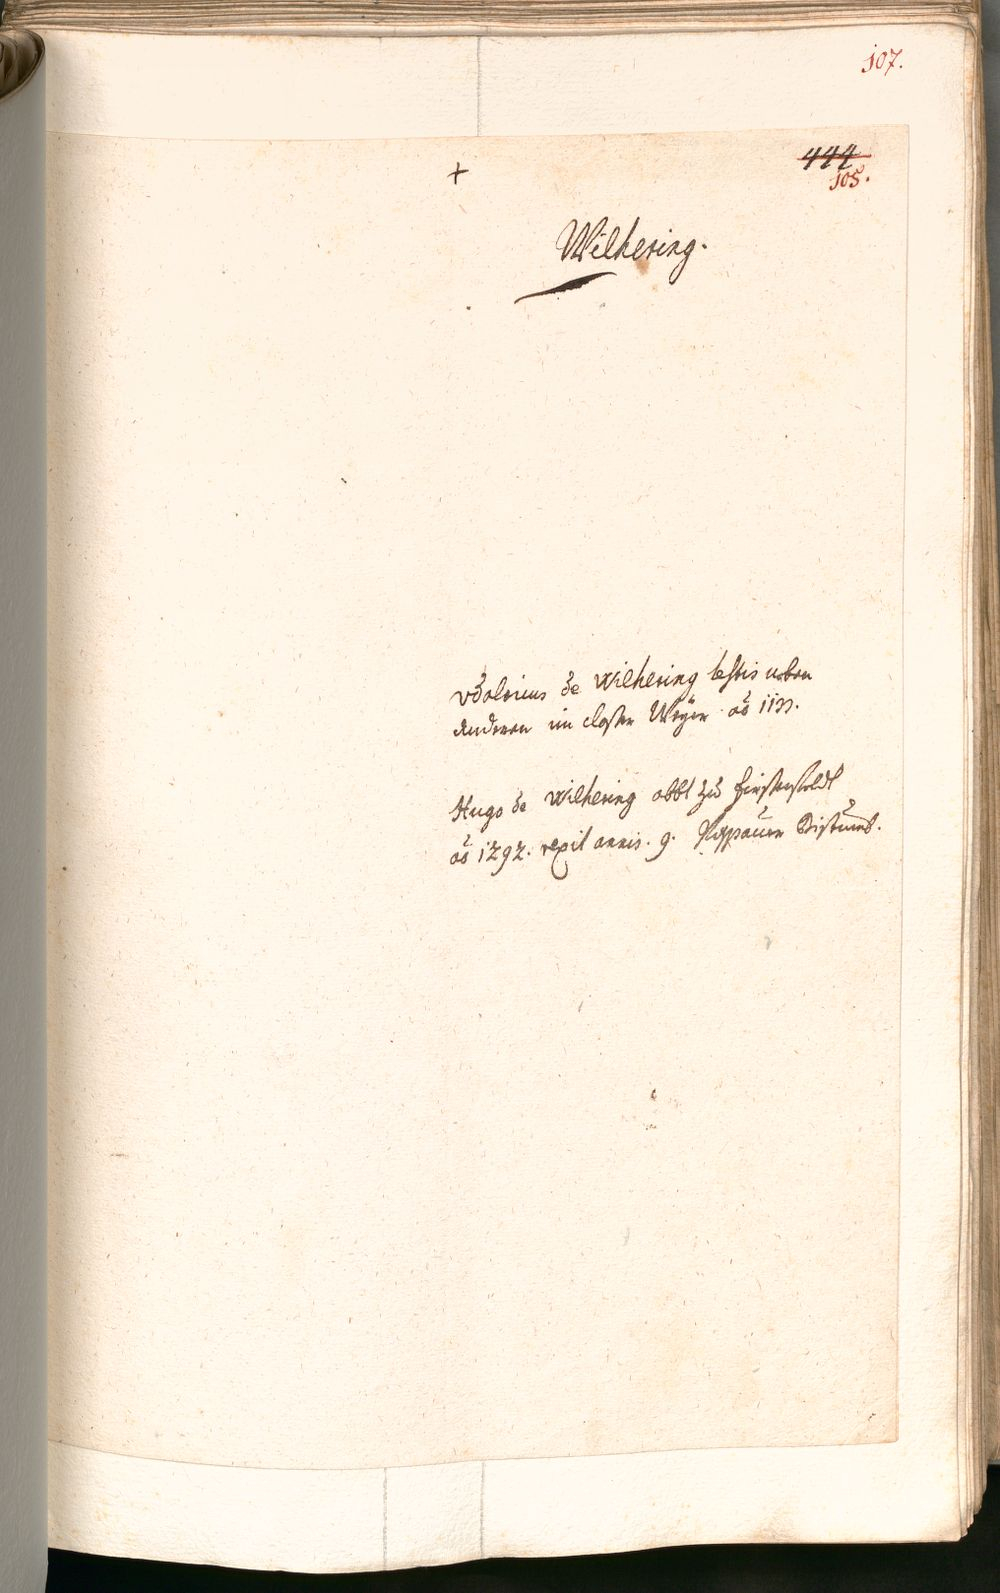 107.
+
444
105.
Wilhering.
vdalricus de Wilhering testis neben
Anderen im closter Weyer ao 1177.
Hugo de Wilhering abbt zu Firstenfeldt
ao 1292. rexit annis. 9. Passauer Bistumb.